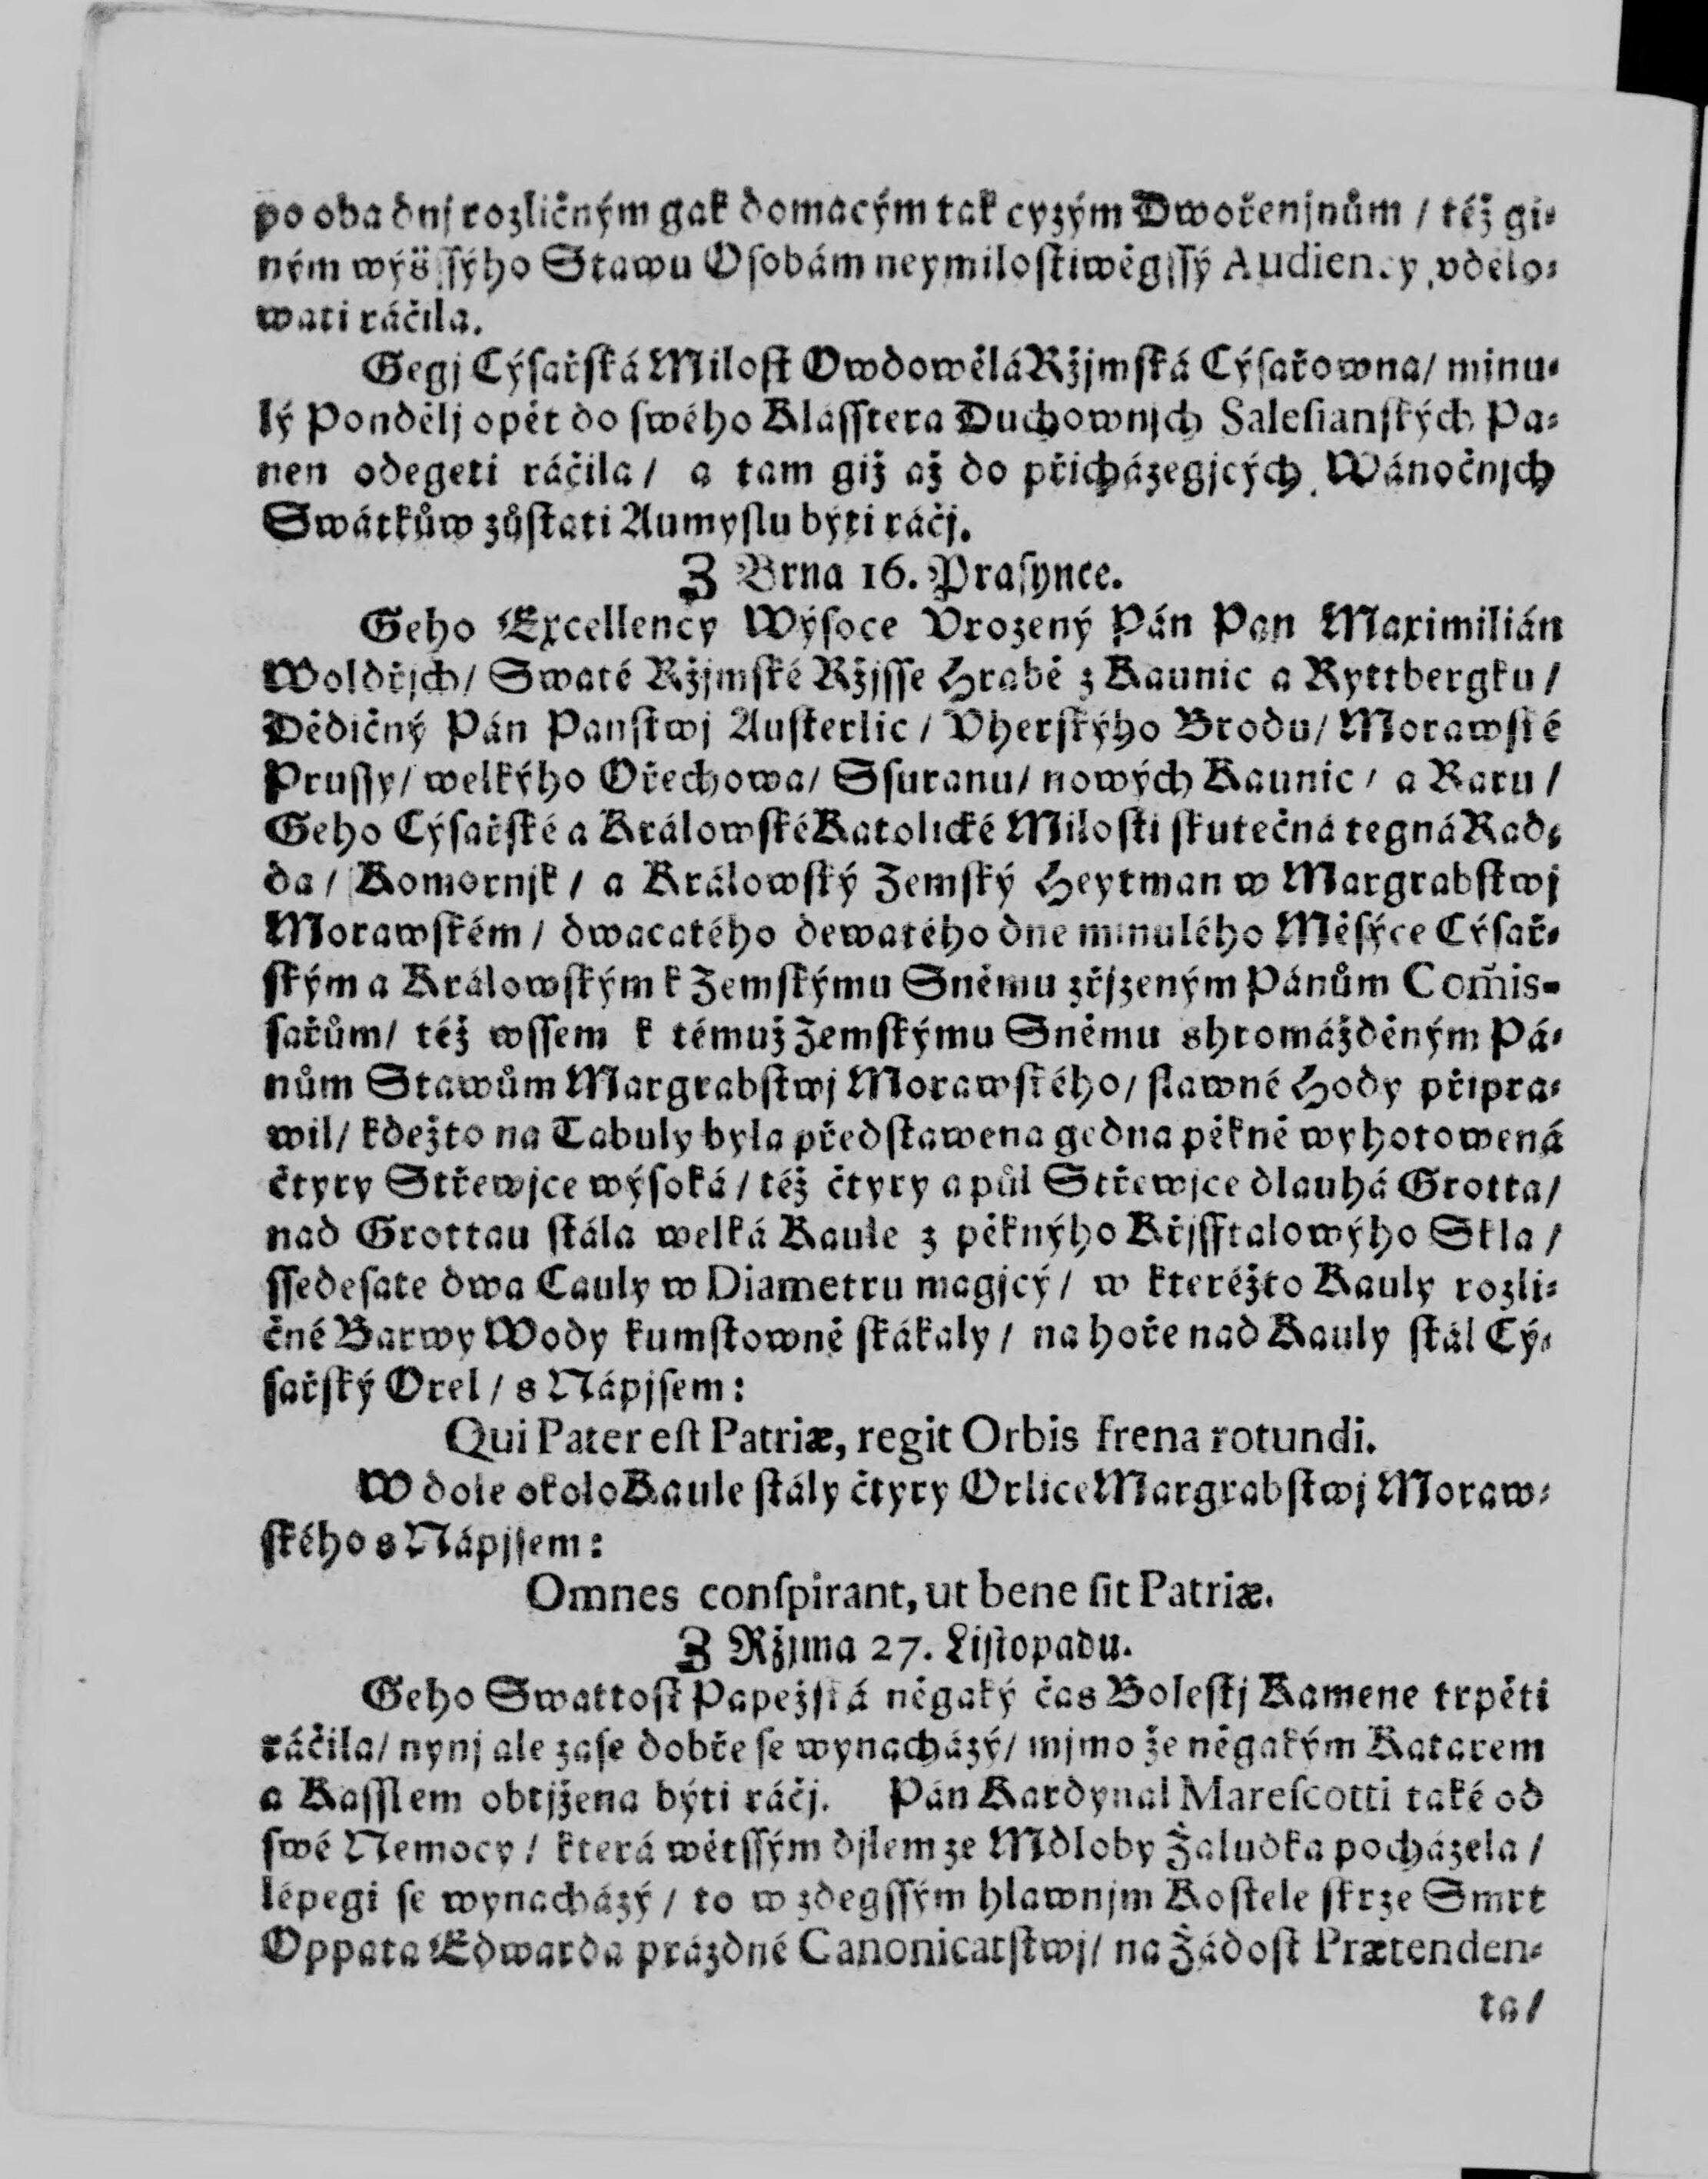 po oba dnj rozličným gak domácým tak cyzým Dwořenjnům / též gi-
ným wýšſſýho Stawu Oſobám neymiloſtiwěgſſý Audiency vdělo-
wati ráčila.
Gegj Cýſařſká Miloſt Owdowělá Ržjmſká Cýſařowna / minu-
lý Pondělj opět do ſwého Kláſſtera Duchownjch Saleſianſkých Pa-
nen odegeti ráčila / a tam giž až do přicházegjcých Wánočnjch
Swátkůw zůſtati Aumyſlu býti ráčj.
Z Brna 16. Praſynce.
Geho Excellency Wýſoce Vrozený Pán Pan Maximilián
Woldřjch / Swaté Ržjmſké Ržjſſe Hrabě z Kaunic a Ryttbergku /
Dědičný Pán Panſtwj Auſterlic / Vherſkýho Brodu / Morawſké
Pruſſy / welkýho Ořechowa / Sſuranu / nowých Kaunic / a Raru /
Geho Cýſařſké a Králowſké Katolické Miloſti ſkutečná tegná Rad-
da / Komornjk / a Králowſký Zemſký Heytman w Margrabſtwj
Morawſkém / dwacatého dewatého dne minulého Měſýce Cýſař-
ſkým a Králowſkým k Zemſkýmu Sněmu zřjzeným Pánům Com̃iſ-
ſařům / též wſſem k témuž Zemſkýmu Sněmu shromážděným Pá-
nům Stawům Margrabſtwj Morawſkého / ſlawné Hody připra-
wil / kdežto na Tabuly byla předſtawena gedna pěkně wyhotowená
čtyry Střewjce wýſoká / též čtyry a půl Střewjce dlauhá Grotta /
nad Grottau ſtála welká Kaule z pěknýho Křjſſtalowýho Skla /
ſſedeſate dwa Cauly w Diametru magjcý / w kteréžto Kauly rozli-
čné Barwy Wody kumſtowně ſkákaly / na hoře nad Kauly ſtál Cý-
ſařſký Orel / s Nápjſem:
Qui Pater eſt Patriæ, regit Orbis frena rotundi.
W dole okolo Kaule ſtály čtyry Orlice Margrabſtwj Moraw-
ſkého s Nápjſem:
Omnes conſpirant, ut bene ſit Patriæ.
Z Ržjma 27. Liſtopadu.
Geho Swattoſt Papežſká něgaký čas Boleſtj Kamene trpěti
ráčila / nynj ale zaſe dobře ſe wynacházý / mjmo že něgakým Katarem
a Kaſſlem obtjžena býti ráčj. Pán Kardynal Mareſcotti také od
ſwé Nemocy / která wětſſým djlem ze Mdloby Žaludka pocházela /
lépegi ſe wynacházý / to w zdegſſým hlawnjm Koſtele ſkrze Smrt
Oppata Edwarda prázdné Canonicatſtwj / na Žádoſt Prætenden-
ta /